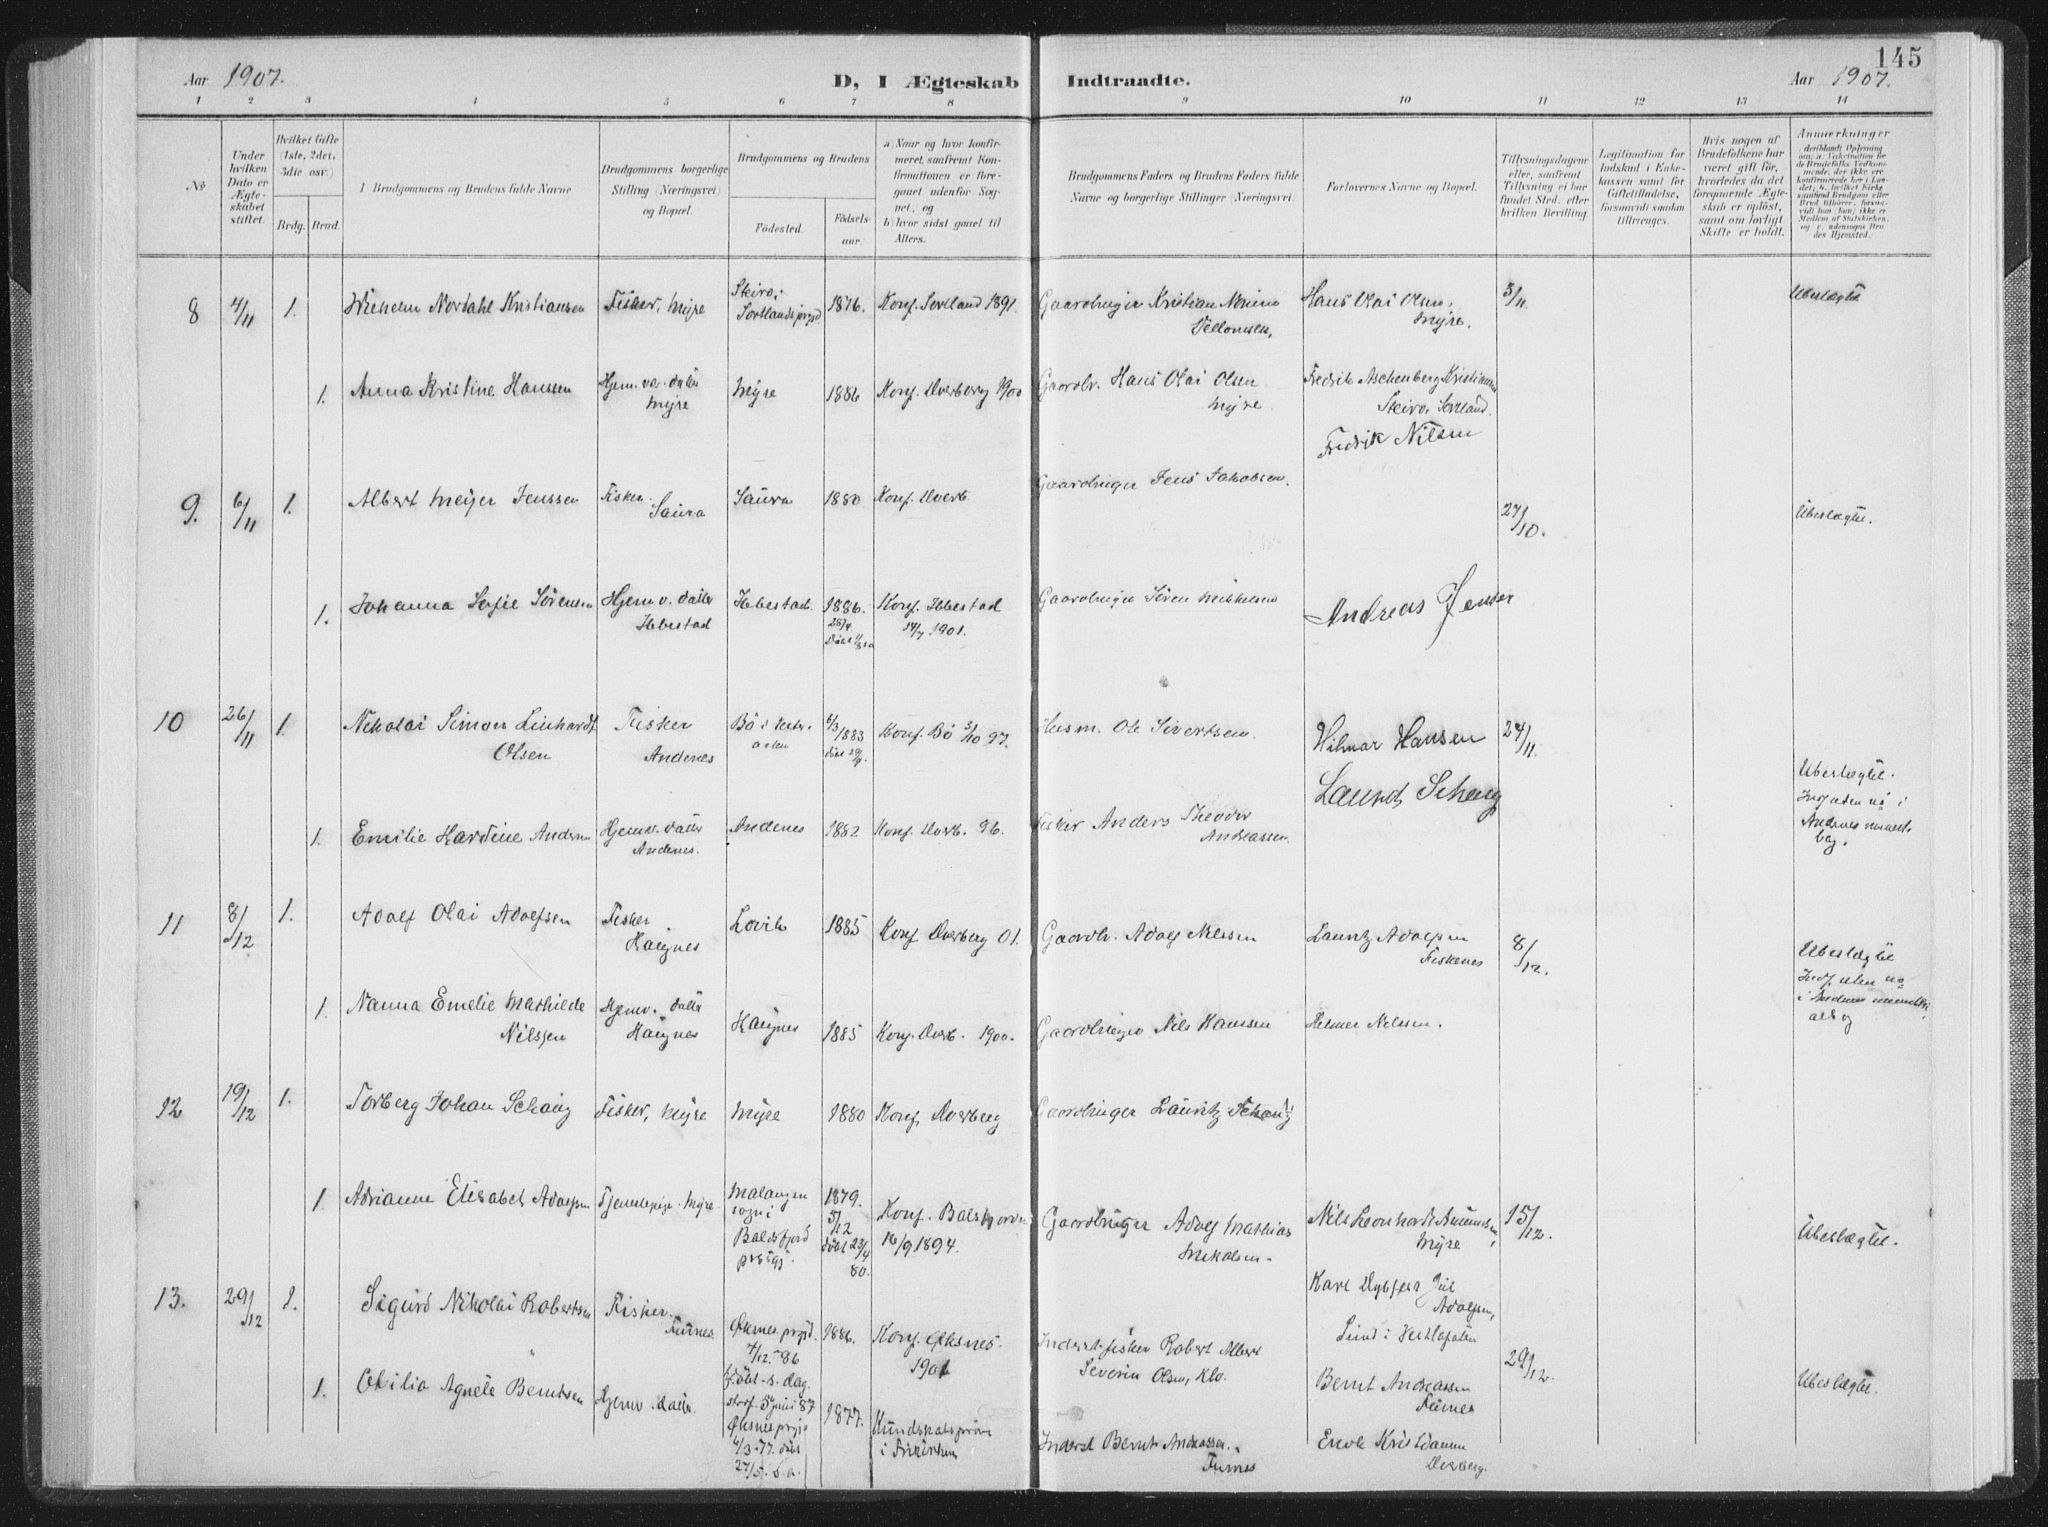 145
Aar 1907.
D, I Ægteskab Indtraadte.
Aar 1907.
1 2 3 4 5 6 7 8 9 10 11 12 13 14
No
Under hvilken Dato er Ægteskabet stiftet.
Hvilket Gifte (1ste, 2det, 3die osv.)
Brdg. Brud.
Brudgommens og Brudens fulde Navne
Brudgommens borgerlige Stilling (Næringsvei) og Bopæl.
Brudgommens og Brudens
Födested.
Födsels-aar.
a) Naar og hvor konfirmeret, saafremt Konfirmationen er foregaaet udenför Sognet, og
b) hvor sidst gaaet til Alters.
Brudgommens Faders og Brudens Faders fulde Navne og borgerlige Stillinger (Næringsvei).
Forlovernes Navne og Bopæl.
Tillysningsdagene eller, saafremt Tillysning ei har fundet Sted, efter hvilken Bevilling
Legitimation for Indskud i Enkekassen samt for Giftetilladelse, forsaavidt saadan tiltrænges.
Hvis nogen af Brudefolkene har været gift før, hvorledes da det foregaaende Ægteskab er oplöst, samt om lovligt Skifte er holdt.
Anmærkninger
8 4/11 1. Wilhelm Nordahl Kristiansen Fisker, Myre Skirö i Sortlands prgjd 1876. Konf. Sortland 1891. Gaardbruger Kristian
Hans Olai Olsen, Myre. 3/11. Ubeslægtet
1. Anna Kristine Hanssen Hjemv. datter Myre Myre 1886 Konf. Dverberg 1900 Gaardbr. Hans Olai Olsen Myre. Fredrik Aschenberg Kristiansen
Skirö, Sortland.
Fredrik Nilsen
9. 6/11 1. Albert Meyer Jenssen Fisker. Saura Saura 1880 Konf. Dverb. Gaardbruger Jens Jakobsen. 27/10. Ubeslægtet.
1. Johanna Sofie Sörensen Hjemv. datter Ibbestad Ibbestad. 1886. 28/4. Konf. Ibbestad 14/7 1901. Gaardbruger Sören Mikkelsen Andreas Jensen
10 26/11 1. Nikolai Simon Linhardt Olsen Fisker Andenes Bö i Vesteraalen 6/3 1883 Konf. Bö 3/10 97. Husm. Ole Sivertsen. Hilmar Hansen 24/11.
Laurits Schang
1. Emilie Hardine Andersen Hjemv. datter Andenes. Andenes 1882 Konf. Dverb. 96. Fisker Anders Theodor Andreassen. Ubeslægtet.
11 8/12 1. Adolf Olai Adolfsen Fisker Haugnes Lovik 1885 Konf Dverberg 01. Gaardbr. Adolf Nilssen Lauritz Adolfsen Fiskenes 8/12. Ubeslægtet
1. Nanna Emelie Mathilde Nilssen Hjemv. datter Haugnes Haugnes 1885 Konf. Dverb. 1900. Gaardbruger Nils Hanssen Helmer Nilssen.
12 19/12 1. Torberg Johan Schang Fisker, Myre Myre 1880 Konf. Dverberg Gaardbruger Lauritz Schang
1 Adrianna Elisabet Adolfsen Tjenestepige. Myre Malangen sogn i Balsfjord prgjd. 1879. 5/12 döbt 23/4 80. Konf. Balsfjorden 16/9 1894. Gaardbruger Adolf Mathias Nikolaisen Nils Leonhardt Amundsen, Myre 15/12. Ubeslægtet.
Karl Dybfjer Juel Adolfsen,
13. 29/12 1. Sigurd Nikolai Robertsen Fisker. Furnes Öksnes prgjd. 7/12. 86 1886. Konf. Öksnes. 1901 Inderst fisker Robert Albert Severin Olsen, Klo. 29/12. Ubeslægtet.
1. Otilie Agnete Berntsen Hjemv. datter. Öksnes prgjd 4/3. 77. döbt 27/5. s. a. 1877. Kundskabspröve i Frikirken Inderst Bernt Andreassen. Furnes
Bernt Andreassen Furnes
Enok Kristiansen Dverberg.